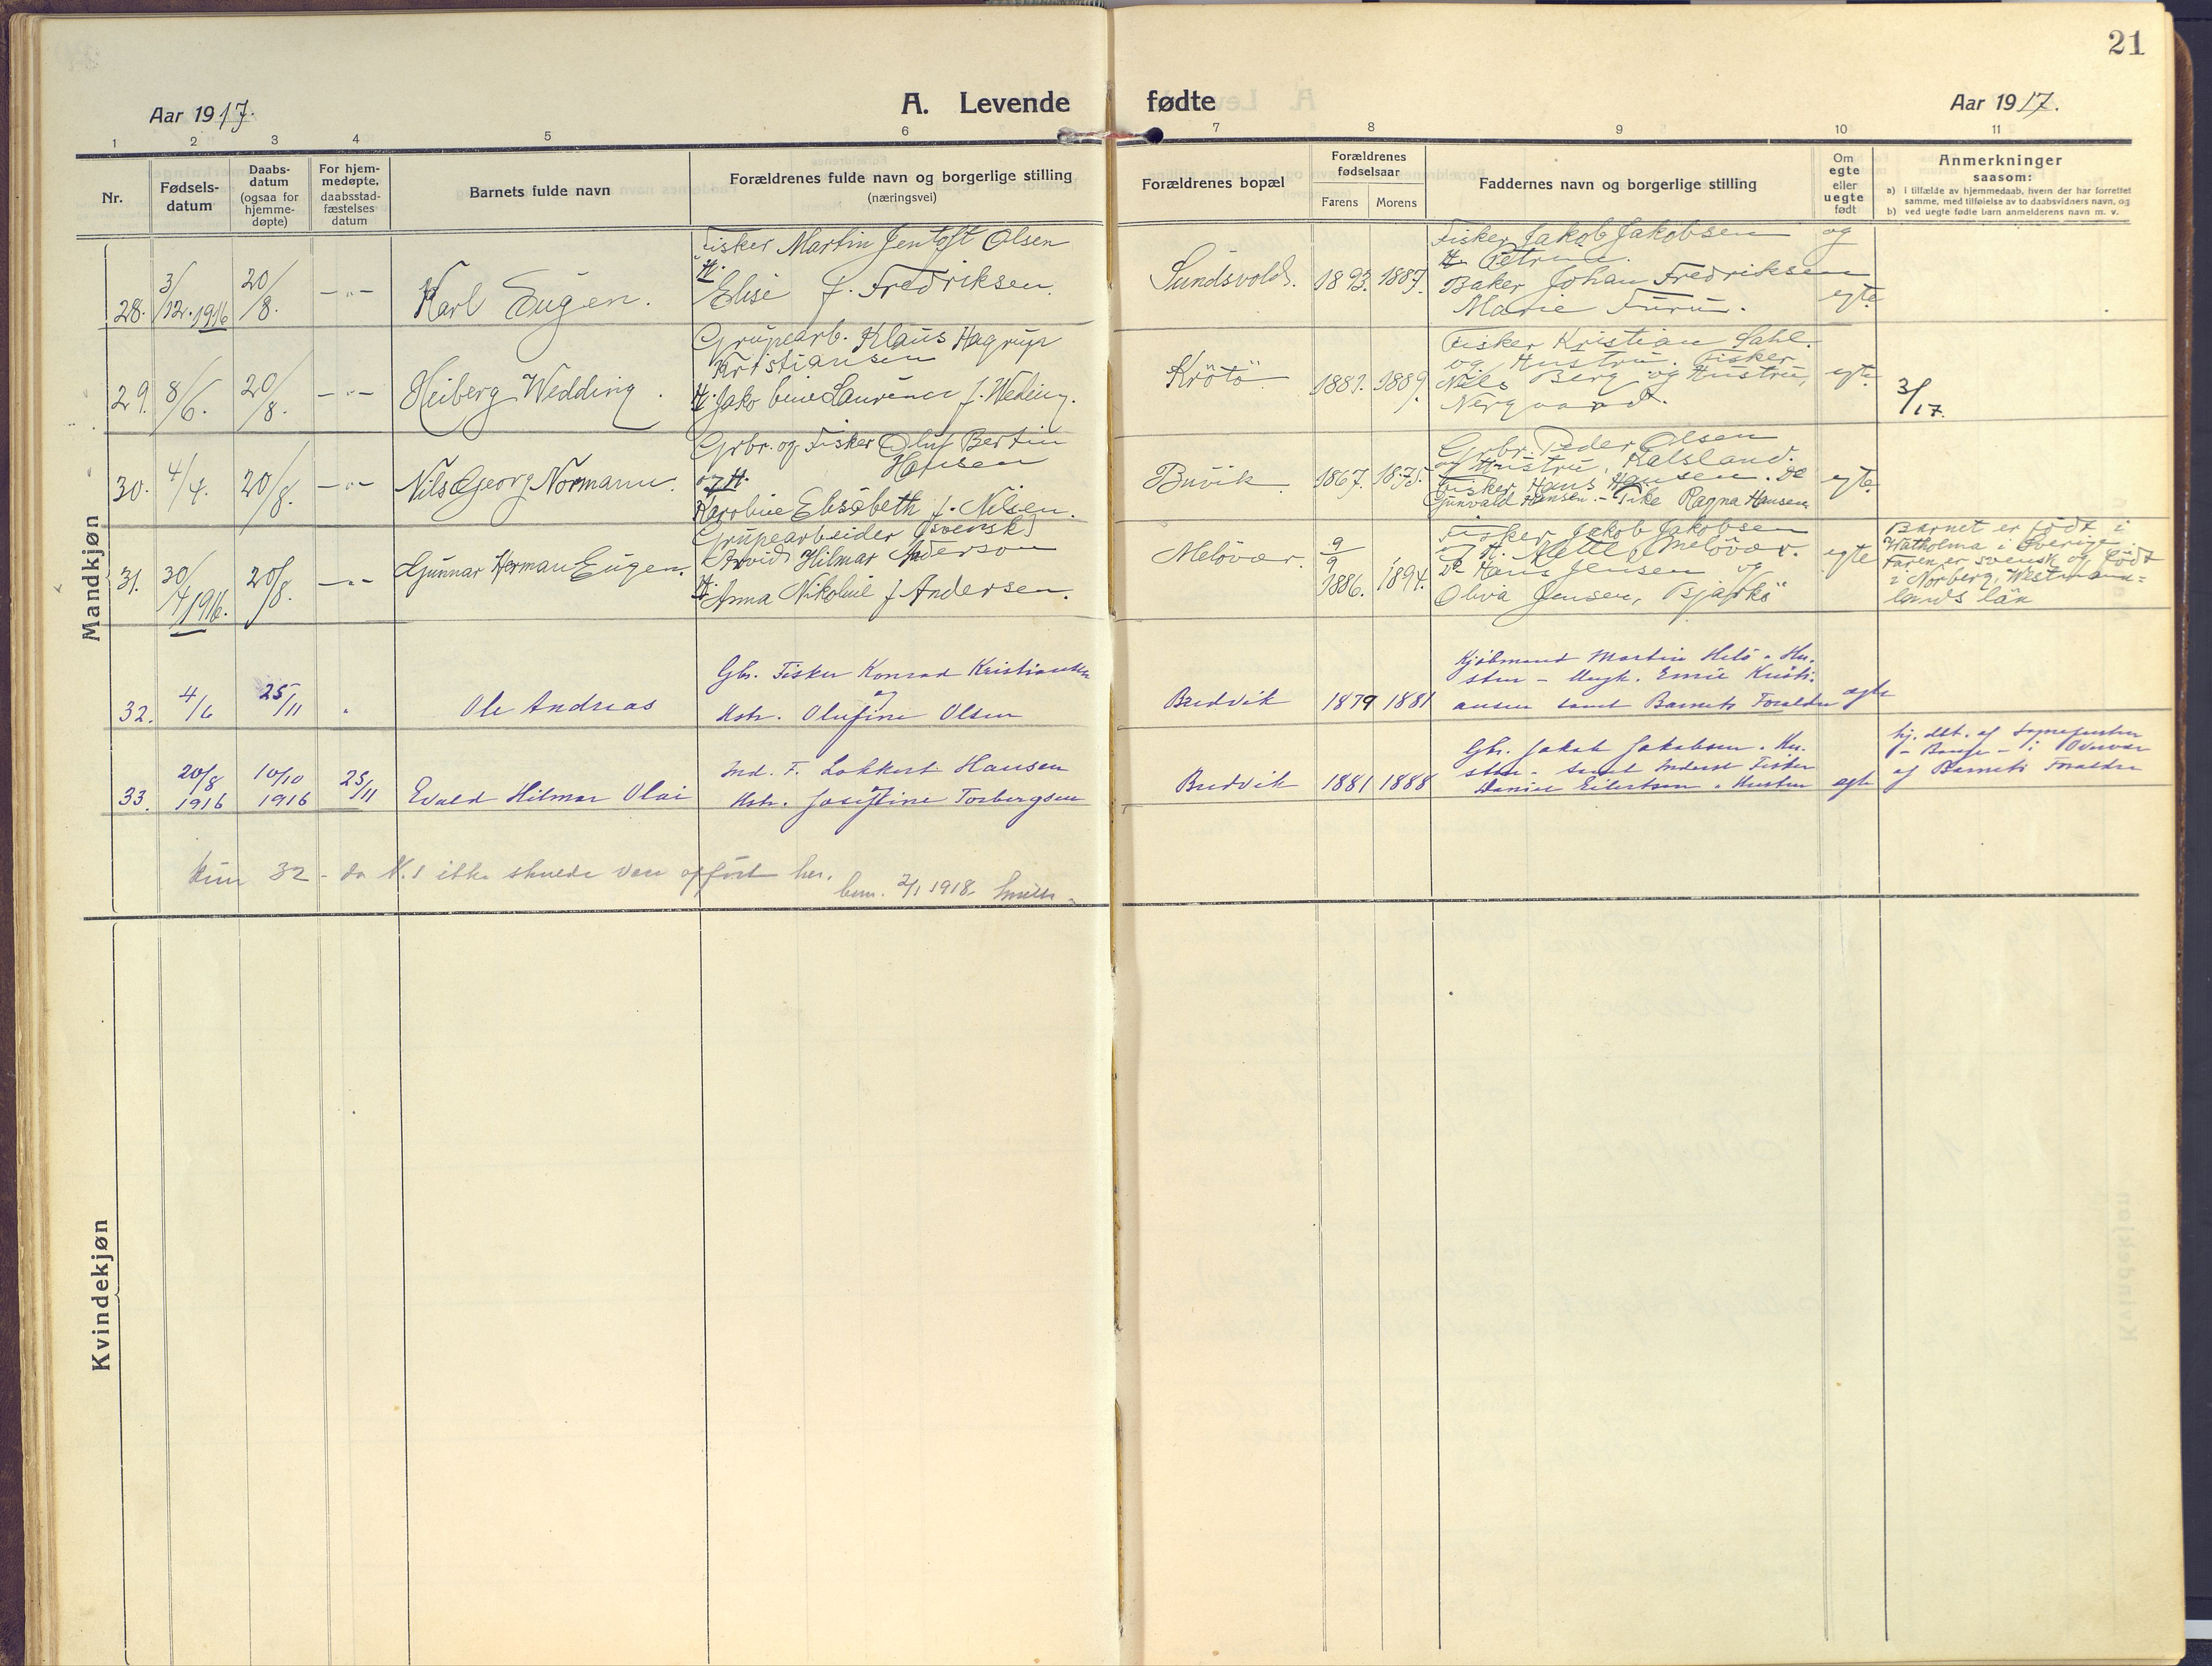 21
Aar 1917.
A. Levende fødte
Aar 1917.
1 2 3 4 5 6 7 8 9 10 11
Nr.
Fødsels-
datum
Daabs-
datum
(ogsaa for
hjemme-
døpte)
For hjem-
medøpte,
daabsstad-
fæstelses
datum
Barnets fulde navn
Forældrenes fulde navn og borgerlige stilling
(næringsvei)
Forældrenes bopæl
Forældrenes
fødselsaar
Farens Morens
Faddernes navn og borgerlige stilling
Om
egte
eller
uegte
født
Anmerkninger
saasom:
a) i tilfælde av hjemmedaab, hvem der har forrettet
samme, med tilføielse av to daabsvidners navn, og
b) ved uegte fødte barn anmelderens navn m. v.
Mandkjøn
28. 3/12. 1916 20/8. -„- Karl Eugen.
Fisker Martin Jentoft Olsen
H.
Elise f. Fredriksen.
Sundsvold. 1893. 1887.
Fisker Jakob Jakobsen og
H. Petrine.
Baker Johan Fredriksen
Marie Furu.
egte
29. 8/6. 20/8. -„- Heiberg Wedding.
Grupearb. Klaus Hagrup
Kristiansen
H. Jakobine Laurence f. Weding.
Krötö 1881. 1889.
Fisker Kristian Dahl.
og Hustru. Fisker
Nils Berg og Hustru,
Nergaard.
egte
3/17.
30. 4/4. 20/8. -„- Nils Georg Normann.
Grbr. og Fisker Oluf Bertin
Hansen
og H.
Karoline Elisabeth f. Nilsen.
Buvik. 1867. 1875.
Grbr. Peder Olsen
og Hustru, Kalsland.
Fisker Hans Hansen. Do
Gunvald Hansen. - Pike Ragna Hansen
egte
31. 30/4 1916. 20/8. -„- Gunnar Herman Eugen.
Grupearbeider (svensk)
Arvid Hilmar Anderson
H. Anna Nikoline f Andersen.
Melövær. 9/9 1886. 1894.
Fisker Jakob Jakobsen
og H. Mette, Melövær.
Do Hans Jensen og
Oliva Jensen, Bjarkö
egte
Barnet er födt i
Watholma i Sverige.
Faren er svensk og födt
i Norberg, Westman=
lands län
32. 4/6 25/11 „ Ole Andreas
Gbr. Fisker Konrad Kristiansen
og
Hstr. Olufine Olsen
Bredvik 1879 1881
Kjöbmand Martin Hu-
stru - Ungk. Emil Kristi-
ansen samt Barnets Foræld​re egte
33. 20/8 1916 10/10 1916 25/11 Evald Hilmar Olai
Ind. F. Lokkert Hansen
og
Hstr. Josefine Torbergsen
Bredvik 1881 1888
Gbr. Jakob Jakobsen. Hu-
stru - samt Inderst Fisker
Eilertsen Hustru egte
hj. dbt. af
af Barnets Forældre
Kun 32 - da N. 1 ikke skulde være opfört her.
bem. 2/1 1918.
Kvindekjøn